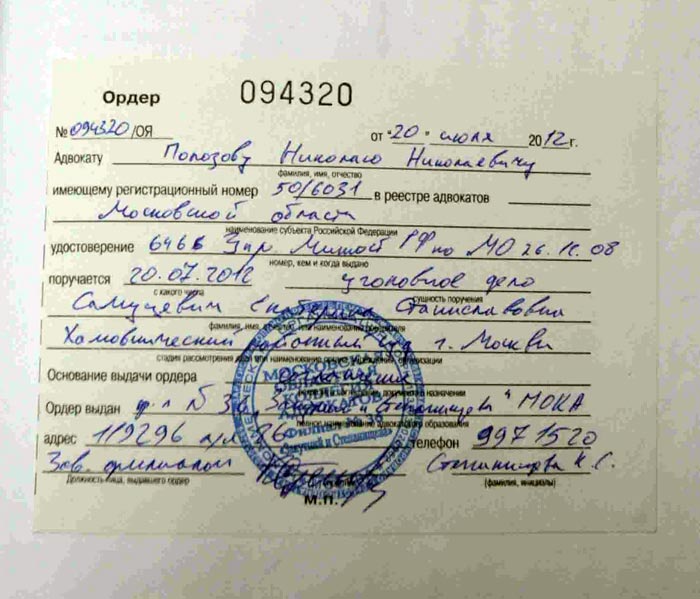 Ордер 094320
№ 094320/ОЯ от "20" июля 2012г.
Адвокату Полозову Николаю Николаевичу
фамилия, имя, отчество
имеющему регистрационный номер 50/6031 в реестре адвокатов
Московской области
наименование субъекта Российской Федерации
удостоверение 6466 Упр. Минюст РФ по МО 26.11.08
номер, кем и когда выдано
поручается 20.07.2012 уголовное дело
с какого числа сущность поручения
Самуцевич Екатерина Станиславовна
фамилия, имя, отчество или наименование
Хамовнический районный суд г. Москвы
стадия рассмотрения дела или наименование органа, учреждения, организации
Основание выдачи ордера Соглашение
Ордер выдан ф-л N 38 и Степанищева" МОКА
полное наименование адвокатского образования
адрес 119296 а/я 26 телефон 9971520
Зав. филиалом Степанищева К.С.
Должность лица, выдавшего ордер (фамилия, инициалы)
М.П.
МОСКОВСКАЯ
ОБЛАСТНАЯ
КОЛЛЕГИЯ
АДВОКАТОВ
Филиал № 38
и Степанищева"